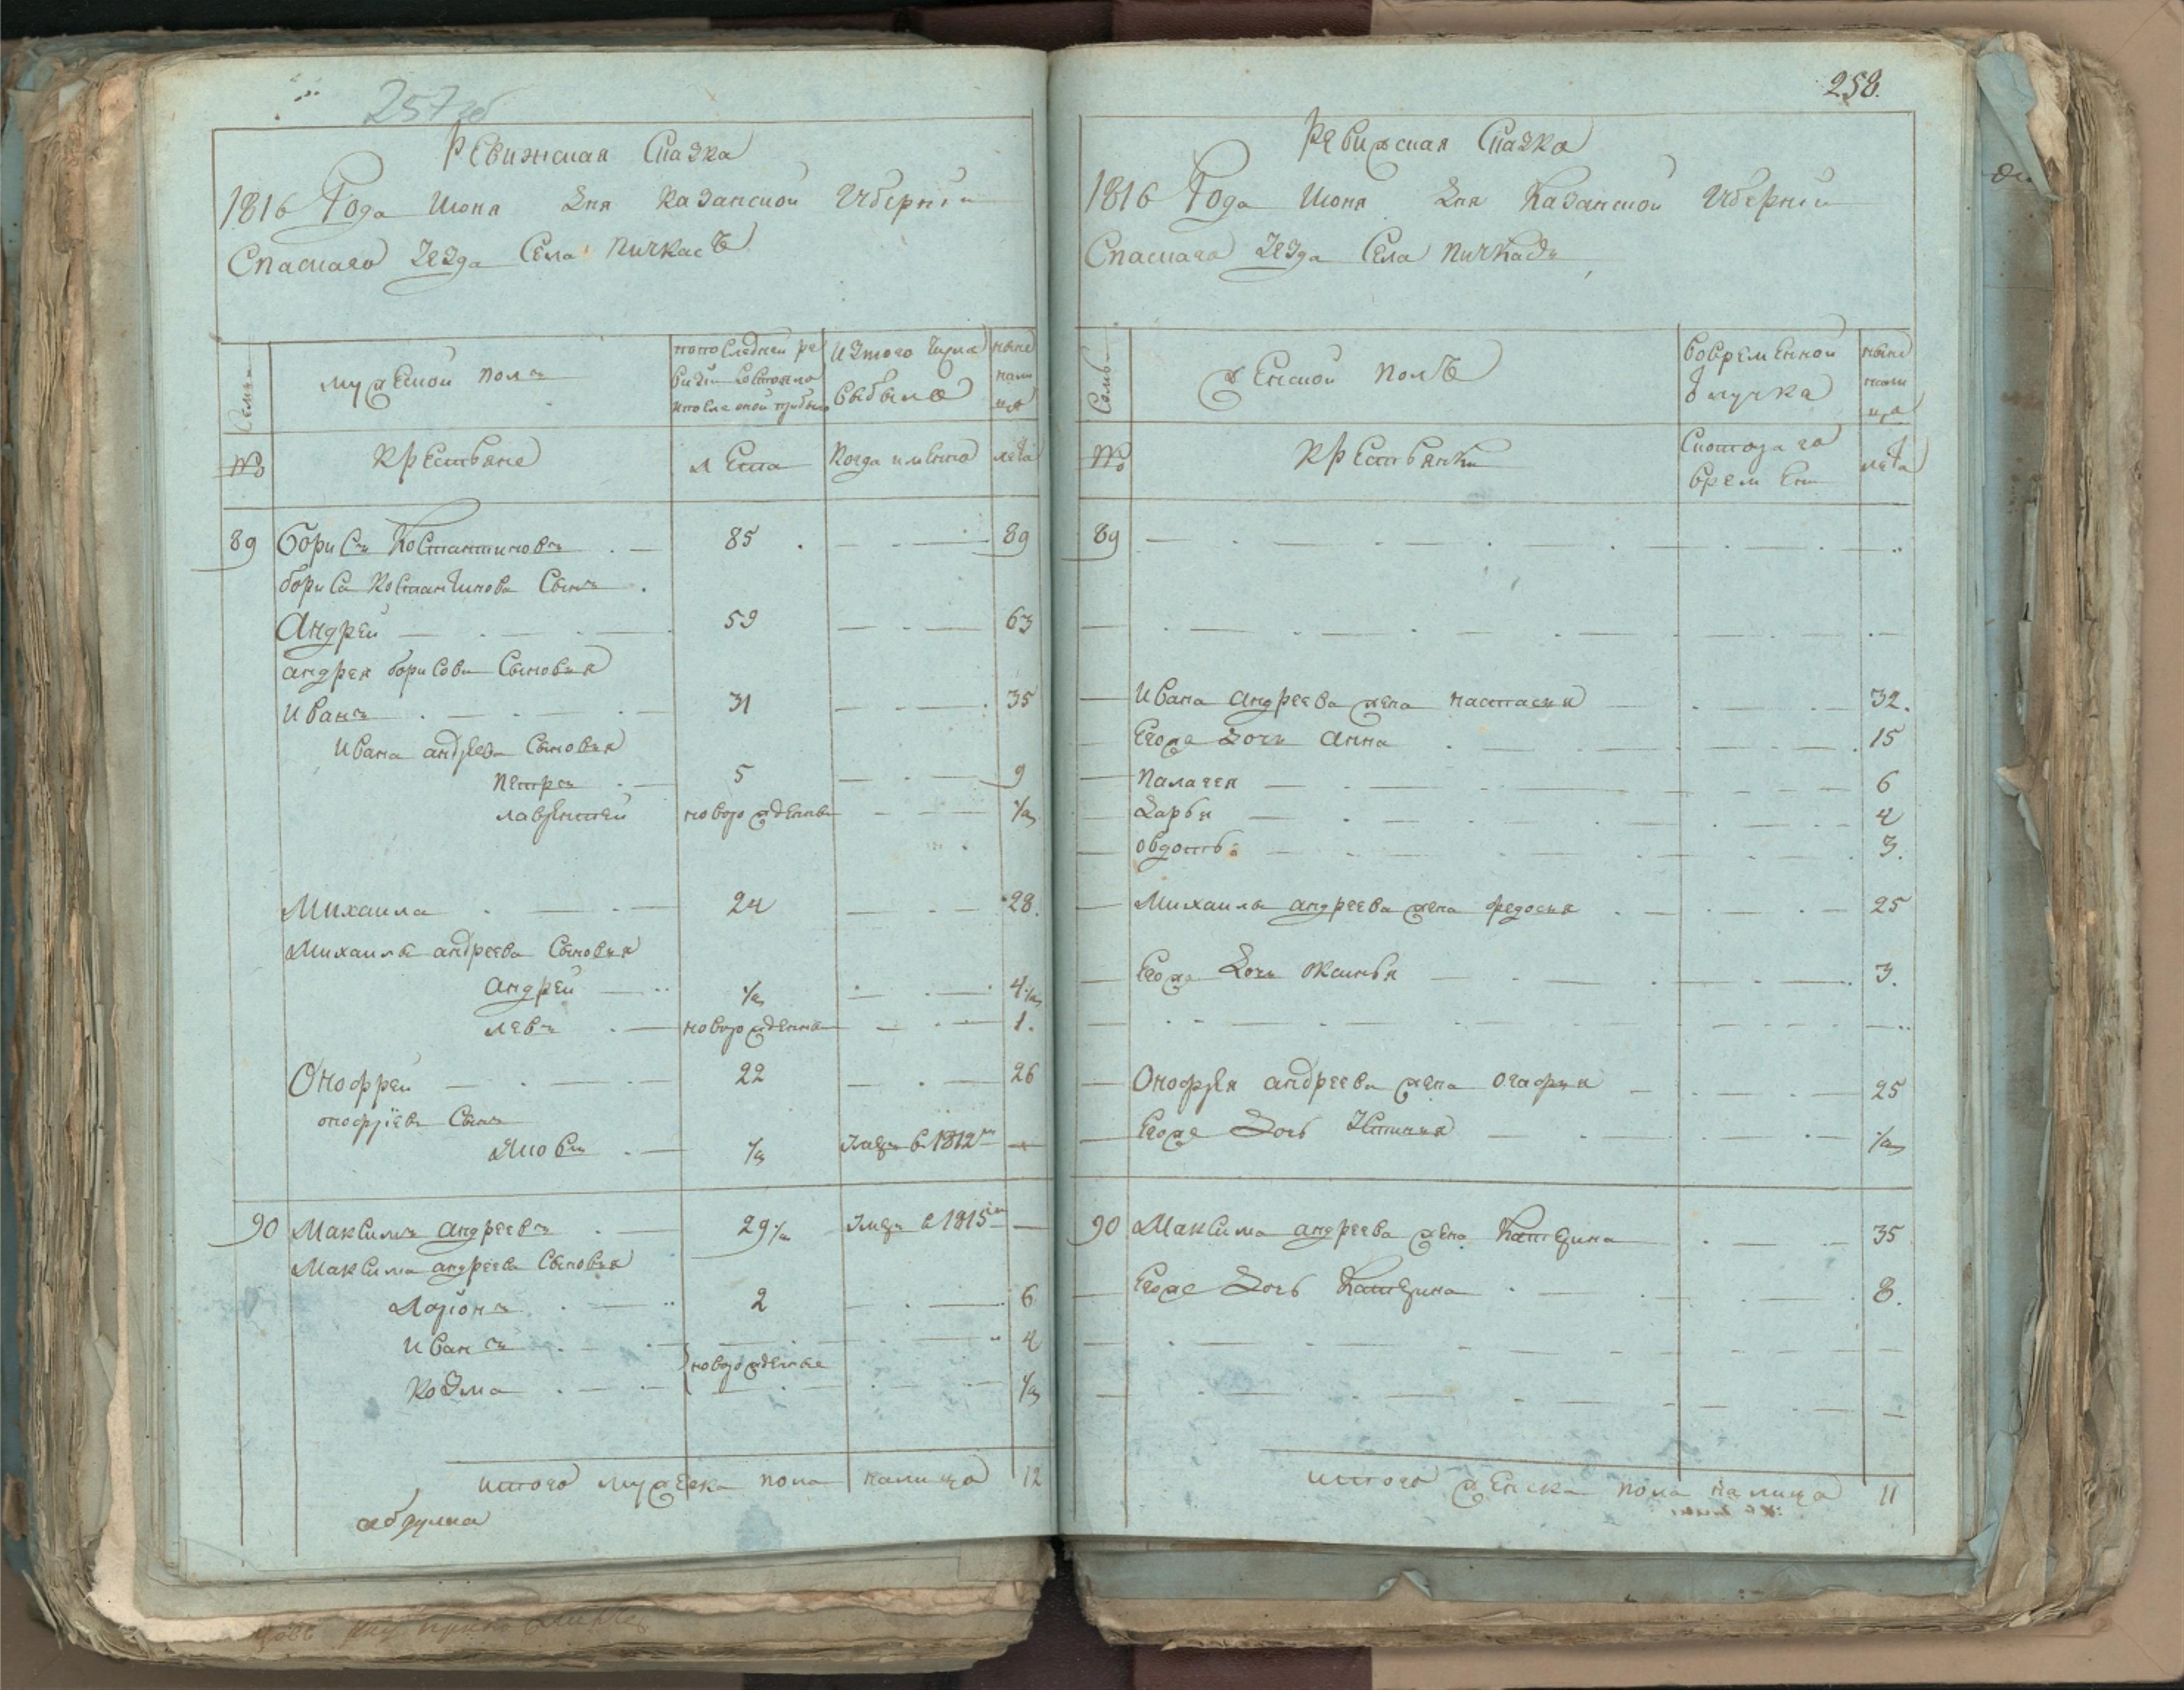 257 об
Ревижская Сказка
1816 Года Июня Дня Казанской Губернïи
Спаскаго Уезда Села Пичкасъ
Семьи
мужеской полъ
попоследней ре
визïи Состояло
ипосле оной прибыло
Изтого Числа
выбыло
ныне
нали
цо
№
Крестьяне
лета
Когда имянно
лета
89 Борисъ Костантиновъ 85 89
бориса Костантинова Сынъ
Андрей 59 63
андрея борисова Сыновья
Иванъ 31 35
Ивана андреева Сыновья
Петръ 5 9
лаврентей новорожденны 1/2
Михаила 24 28.
Михаилы андреева Сыновья
андрей 1/2 4 1/2
левъ новорожденны 1.
Онофрей 22 26
онофрïева Сынъ
Яковъ 1/2 Умре в 1812м
90 Максимъ андреевъ 29 1/2 Умре в 1815м
Максима андреева Сыновья
Ларïонъ 2 6
Иванъ 4
новорожденые
Козма 1/2
итого мужеска пола налицо 12
абдулка
258.
Ревижская Сказка
1816 Года Июня Дня Казанской Губернïи
Спаскаго Уезда Села Пичкасъ
Семьи
женской полъ
вовременной
отлучке
ныне
нали
цо
№
Крестьянки
Скотораго
времени
лета
89
Ивана андреева жена настасья 32.
Егоже дочь анна 15
Палагея 6
Дарья 4
овдотья 3.
Михаилы андреева жена федосья 25
Егоже дочь Оксинья 3.
Онофрея андреева жена огафья 25
Егоже Дочь Устинья 1/2
90 Максима андреева жена Катерина 35
Егоже Дочь Катерина 8.
итого женска пола налицо 11